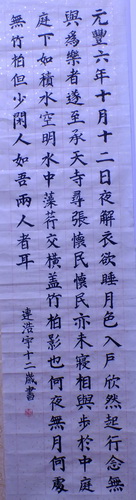 元豐六年十月十二日夜解衣欲睡月色入戶欣然起行念無
與為樂者遂至承天寺尋張懷民懷民亦未寢相與步於中庭
庭下如積水空明水中藻荇交橫蓋竹柏影也何夜無月何處
無竹柏但少閑人如吾兩人者耳
連浩宇十二歲書